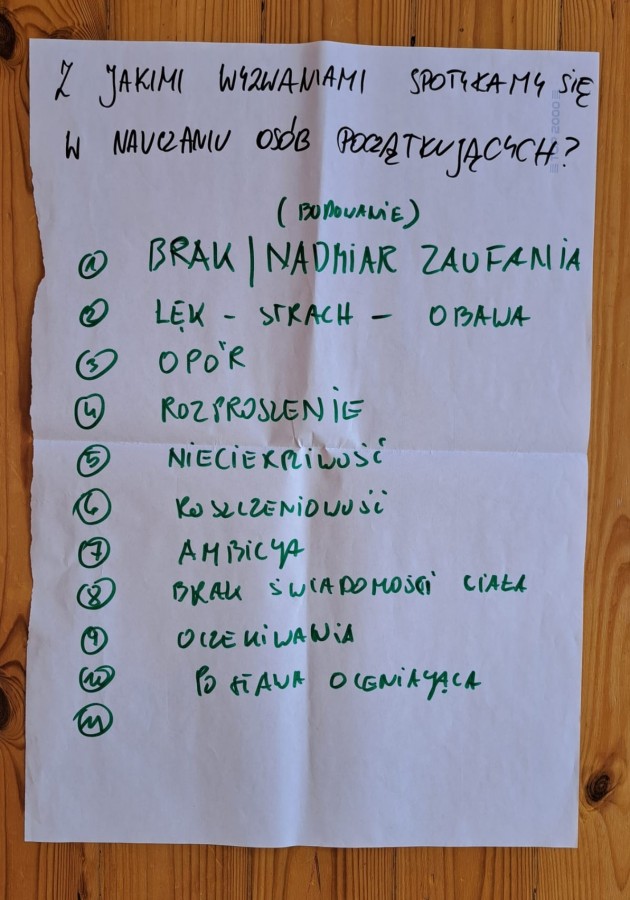 Z JAKIMI WYZWANIAMI SPOTYKAMY SIĘ
W NAUCZANIU OSÓB POCZĄTKUJĄCYCH?
(BUDOWANIE)
1 BRAK | NADMIAR ZAUFANIA
2 LĘK - STRACH - OBAWA
3 OPÓR
4 ROZPROSZENIE
5 NIECIERPLIWOŚĆ
6 ROSZCZENIOWOŚĆ
7 AMBICYA
8 BRAK ŚWIADOMOŚCI CIAŁA
9 OCZEKIWANIA
10 POSTAWA OCENIAJĄCA
11